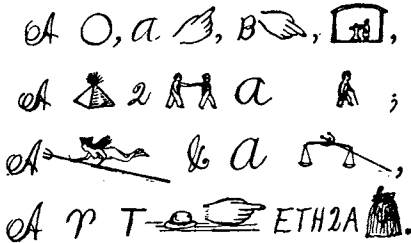 A O, a B,
A 2 a ;
A & a ,
A ♈ T ETH2A.